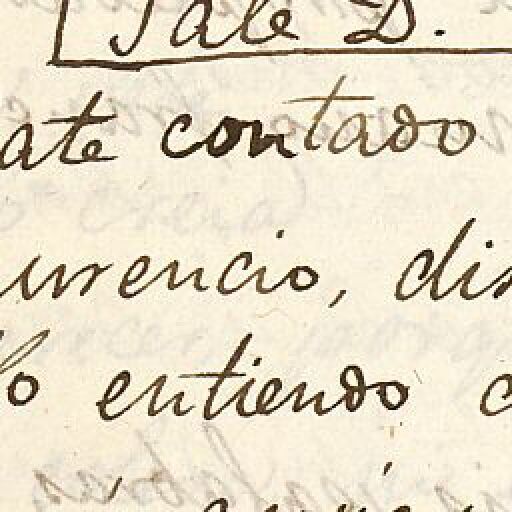 Sale D.
ate contado
urrencio, dis
lo entiendo c